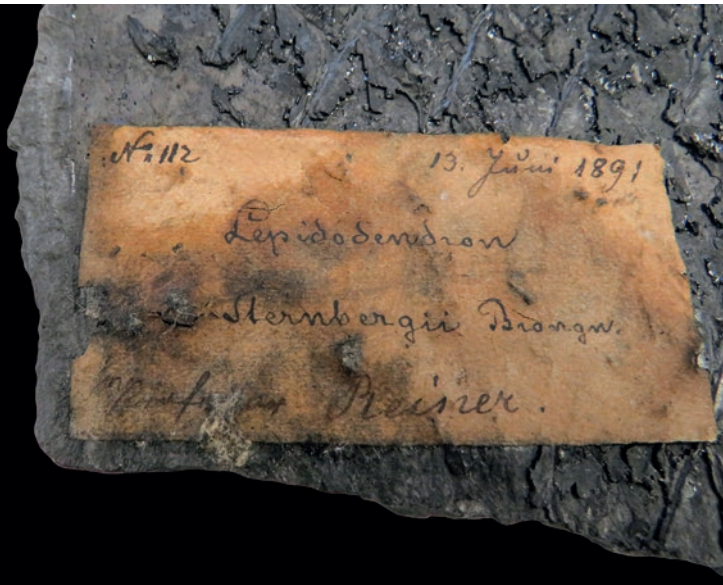 No 112
13. Juni 1891
Lepidodendron
Sternbergii Brongn.
Reiser.